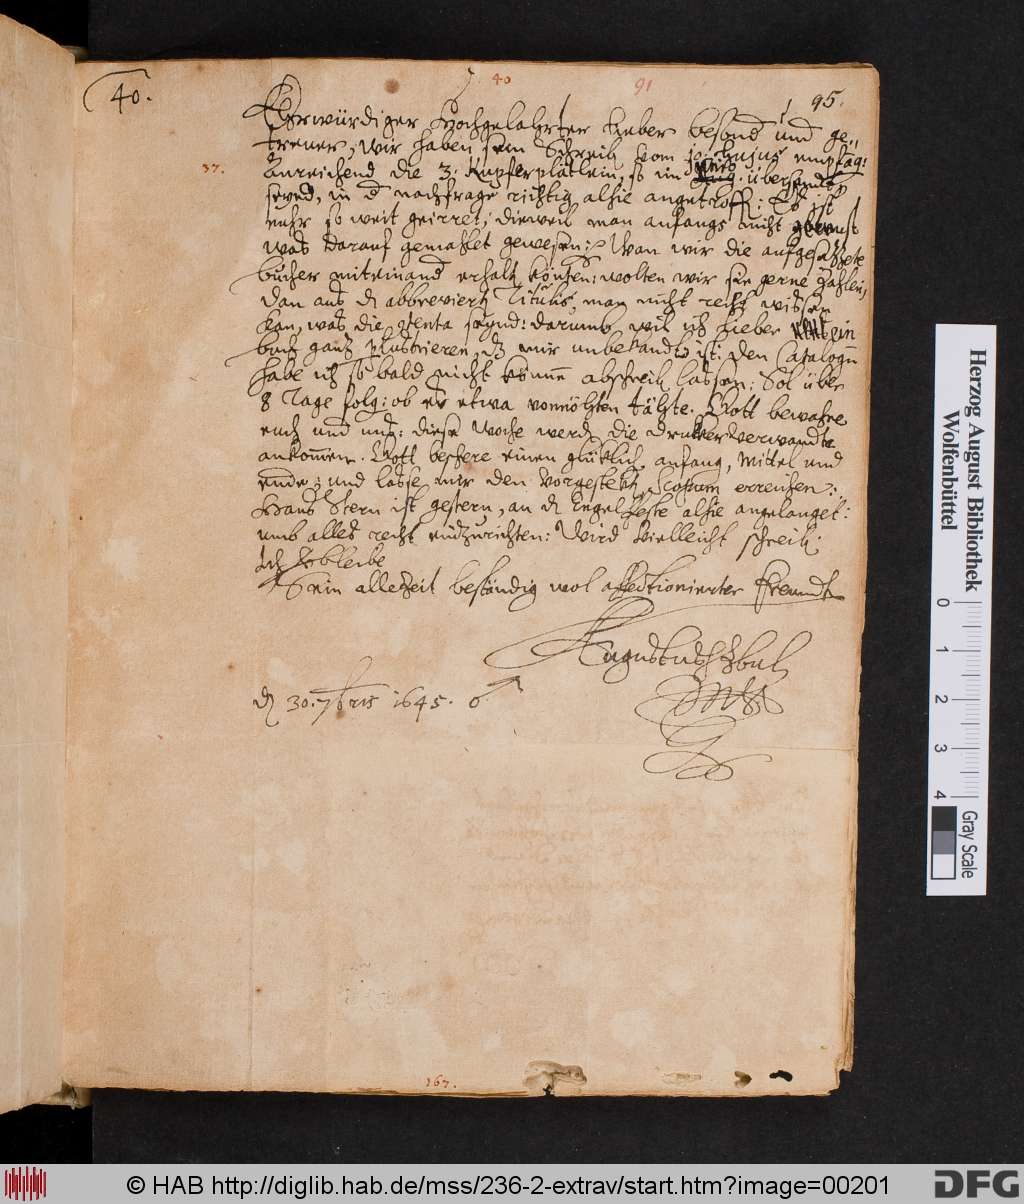 40.
40
91
95.
Ehrwürdiger Hochgelahrter Lieber besond und ge„
trewer, Wir haben sein Schreib vom hujus empfag:
37.
Anreichend die 3. Kupferplätlein, so im übersendet
seynd, in nachfrage richtig alhie angetroff: Es ist
mehr so weit geirret, dieweil man anfangs nicht gewust
was darauf gemahlet gewesen: Wan wir die aufgesetzete
bücher miteinand erhalt könten: wolten wir sie gerne zahlen,
dan aus abbreviert Titulis, man nicht recht wissen
kan, was die seynd: darumb wil ich lieber ein
buch gantz, mir unbekandt ist: den Catalogu
habe ich so bald nicht könne abschreib lassen: Sol über
8 Tage folg: ob er etwa vonnöhten tähte. Gott bewahre
euch und uns: diese Woche werd die drukkerverwandte
ankommen. Gott beschere einen glüklich anfang, mittel und
ende; und lasse mir den vorgesteckt Scopum erreichen:
Hans Stern ist gestern, an Engelfeste alhie angelanget:
umb alles recht einzurichten: Wird vielleicht schreib.
Ich verbleibe
Sein allezeit beständig wol affectionierter Freundt
Augustus H z Bu L
d 30. 7bris 1645.
167.
Herzog August Bibliothek
Wolfenbüttel
0 1 2 3 4
Gray Scale
© HAB http://diglib.hab.de/mss/236-2-extrav/start.htm?image=00201
DFG